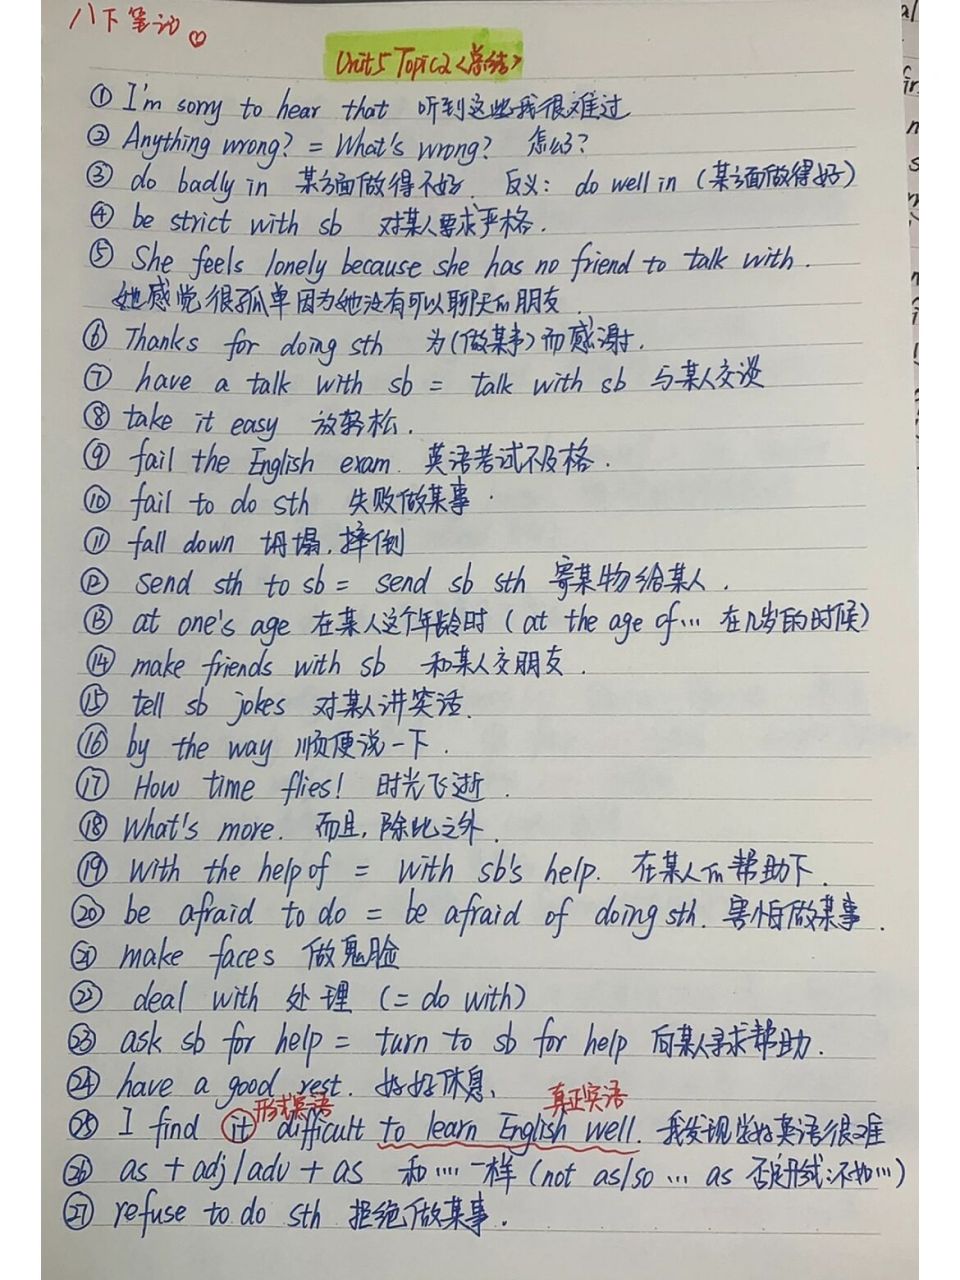 八下笔记
Unit5 Topic2<总结>
① I'm sorry to hear that 听到这些我很难过
② Anything wrong? = What's wrong? 怎么了?
③ do badly in 某方面做得不好. 反义: do well in (某方面做得好)
④ be strict with sb 对某人要求严格.
⑤ She feels lonely because she has no friend to talk with.
她感觉很孤单因为她没有可以聊天的朋友.
⑥ Thanks for doing sth 为(做某事)而感谢.
⑦ have a talk with sb = talk with sb 与某人交谈
⑧ take it easy 放轻松.
⑨ fail the English exam. 英语考试不及格.
⑩ fail to do sth 失败做某事.
⑪ fall down 坍塌.摔倒
⑫ send sth to sb = send sb sth 寄某物给某人.
⑬ at one's age 在某人这个年龄时 (at the age of… 在几岁的时候)
⑭ make friends with sb 和某人交朋友.
⑮ tell sb jokes 对某人讲笑话.
⑯ by the way 顺便说一下.
⑰ How time flies! 时光飞逝.
⑱ What's more. 而且,除此之外.
⑲ with the help of = with sb's help. 在某人的帮助下.
⑳ be afraid to do = be afraid of doing sth. 害怕做某事.
㉑ make faces 做鬼脸
㉒ deal with 处理 (= do with)
㉓ ask sb for help = turn to sb for help 向某人寻求帮助.
㉔ have a good rest. 好好休息.
形式宾语 真正宾语
㉕ I find it difficult to learn English well. 我发现学好英语很难
㉖ as + adj/adv + as 和……一样 (not as/so … as 否定形式:不如…)
㉗ refuse to do sth 拒绝做某事.